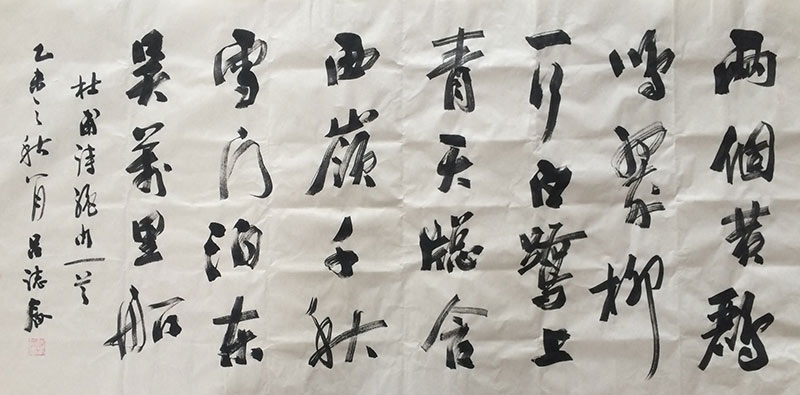 兩個黃鸝
鳴翠柳
一行白鷺上
青天牕含
西嶺千秋
雪門泊東
吳萬里船
杜甫詩絕句一首
乙未之秋八月 呂誌